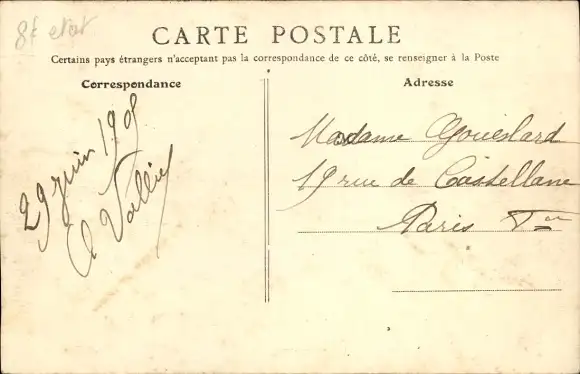 8f etat
CARTE POSTALE
Certains pays étrangers n'acceptant pas la correspondance de ce côté, se renseigner à la Poste
Correspondance
Adresse
29 juin 1908
A Vallin
Madame Gouëslard
19 rue de Castellane
Paris